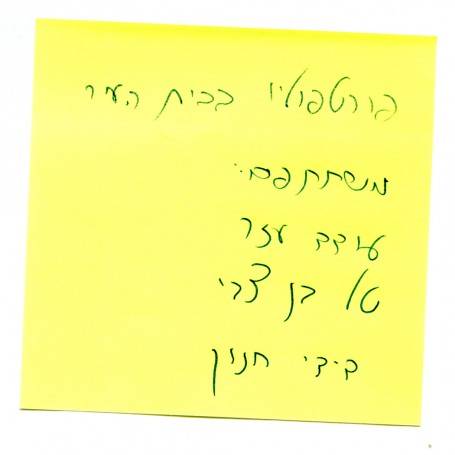 פורטפוליו בבית העיר
משתתפים:
עודד עזר
טל בן צבי
דידי חנון